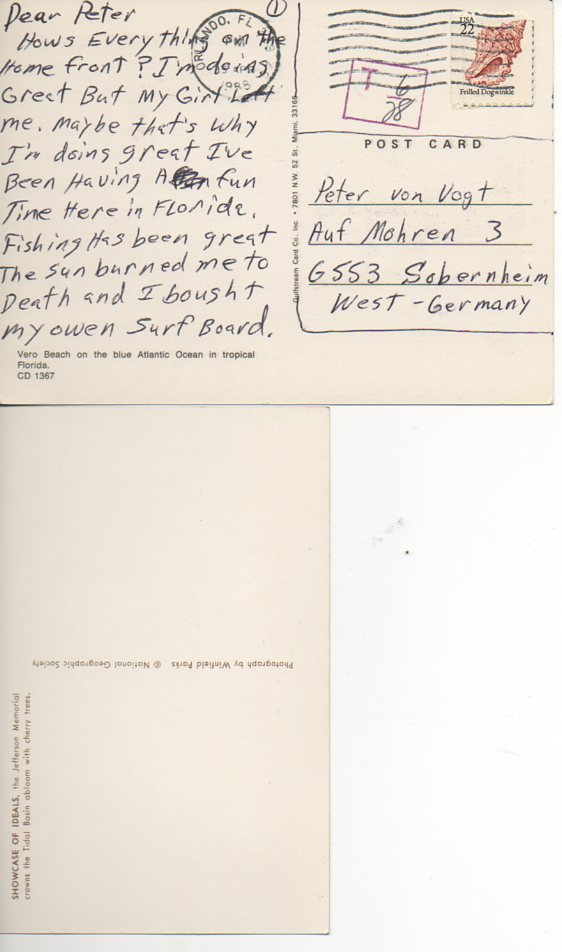 Dear Peter
Hows Everything on the
Home front? I'm doing
Great But My Girl Left
me. Maybe that's why
I'm doing great I've
Been Having A fun
Time Here in Florida.
Fishing Has been great
The Sun burned me to
Death and I bought
my owen Surf Board.
Vero Beach on the blue Atlantic Ocean in tropical
Florida.
CD 1367
1
ORLANDO, FL
PM
Gulfstream Card Co., Inc. • 7801 N.W. 52 St. Miami, 33166
T 6
28
USA
22
Frilled Dogwinkle
POST CARD
Peter von Vogt
Auf Mohren 3
6553 Sobernheim
West-Germany
Photograph by Winfield Parks © National Geographic Society
SHOWCASE OF IDEALS, the Jefferson Memorial
crowns the Tidal Basin abloom with cherry trees.